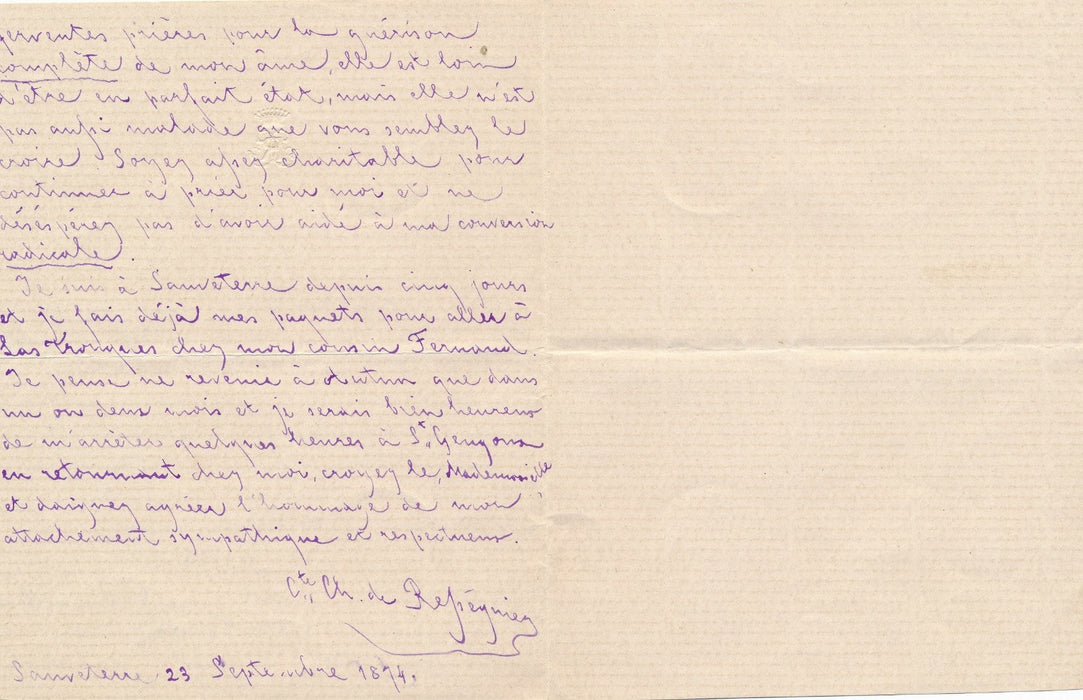 ferventes prières pour la guérison
complète de mon âme, elle est loin
d'être en parfait état, mais elle n'est
pas aussi malade que vous semblez le
croire. Soyez assez charitable pour
continuer à prier pour moi et ne
désespérez pas d'avoir aidé à ma conversion
radicale.
Je suis à Sauveterre depuis cinq jours
et je fais déjà mes paquets pour aller à
Las chez mon cousin Fernand.
Je pense ne revenir à Autun que dans
un ou deux mois et je serais bien heureux
de m'arrêter quelques heures à St Gengoux
en retournant chez moi, croyez le, Mademoiselle,
et daignez agréer l'hommage de mon
attachement sympathique et respectueux.
Cte Ch. de Rességuier
Sauveterre 23 Septembre 1874.